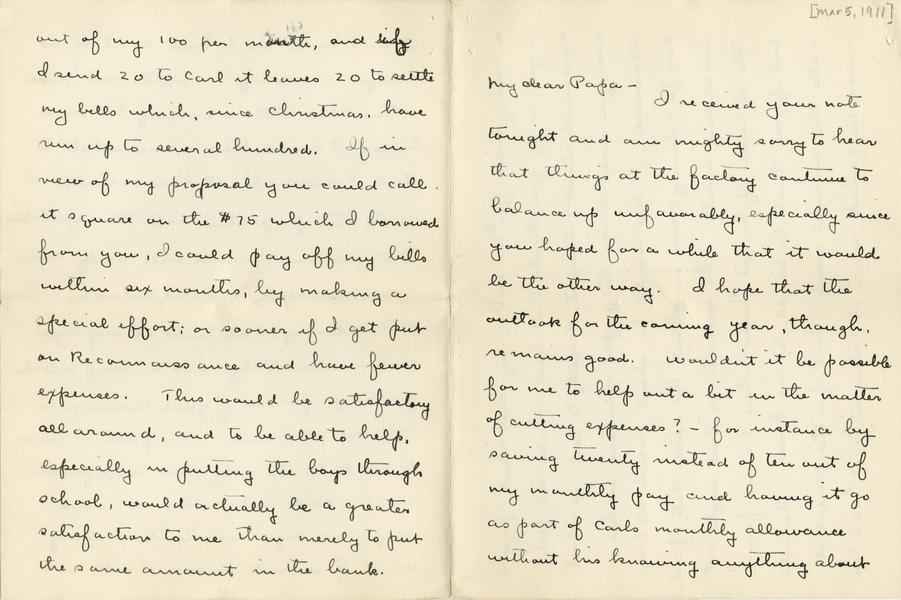 [Mar 5, 1911]
My dear Papa -
I received your note
tonight and am mighty sorry to hear
that things at the factory continue to
balance up unfavorably, especially since
you hoped for a while that it would
be the other way. I hope that the
outlook for the coming year, though,
remains good. Wouldn't it be possible
for me to help out a bit in the matter
of cutting expenses? - for instance by
saving twenty instead of ten out of
my monthly pay and having it go
as part of Carls monthly allowance
without his knowing anything about
out of my 100 per month, and if
I send 20 to Carl it leaves 20 to settle
my bills which, since Christmas, have
run up to several hundred. If in
view of my proposal you could call
it square on the $75 which I borrowed
from you, I could pay off my bills
within six months, by making a
special effort; or sooner if I get put
on Reconnaissance and have fewer
expenses. This would be satisfactory
all around, and to be able to help,
especially in putting the boys through
school, would actually be a greater
satisfaction to me than merely to put
the same amount in the bank.